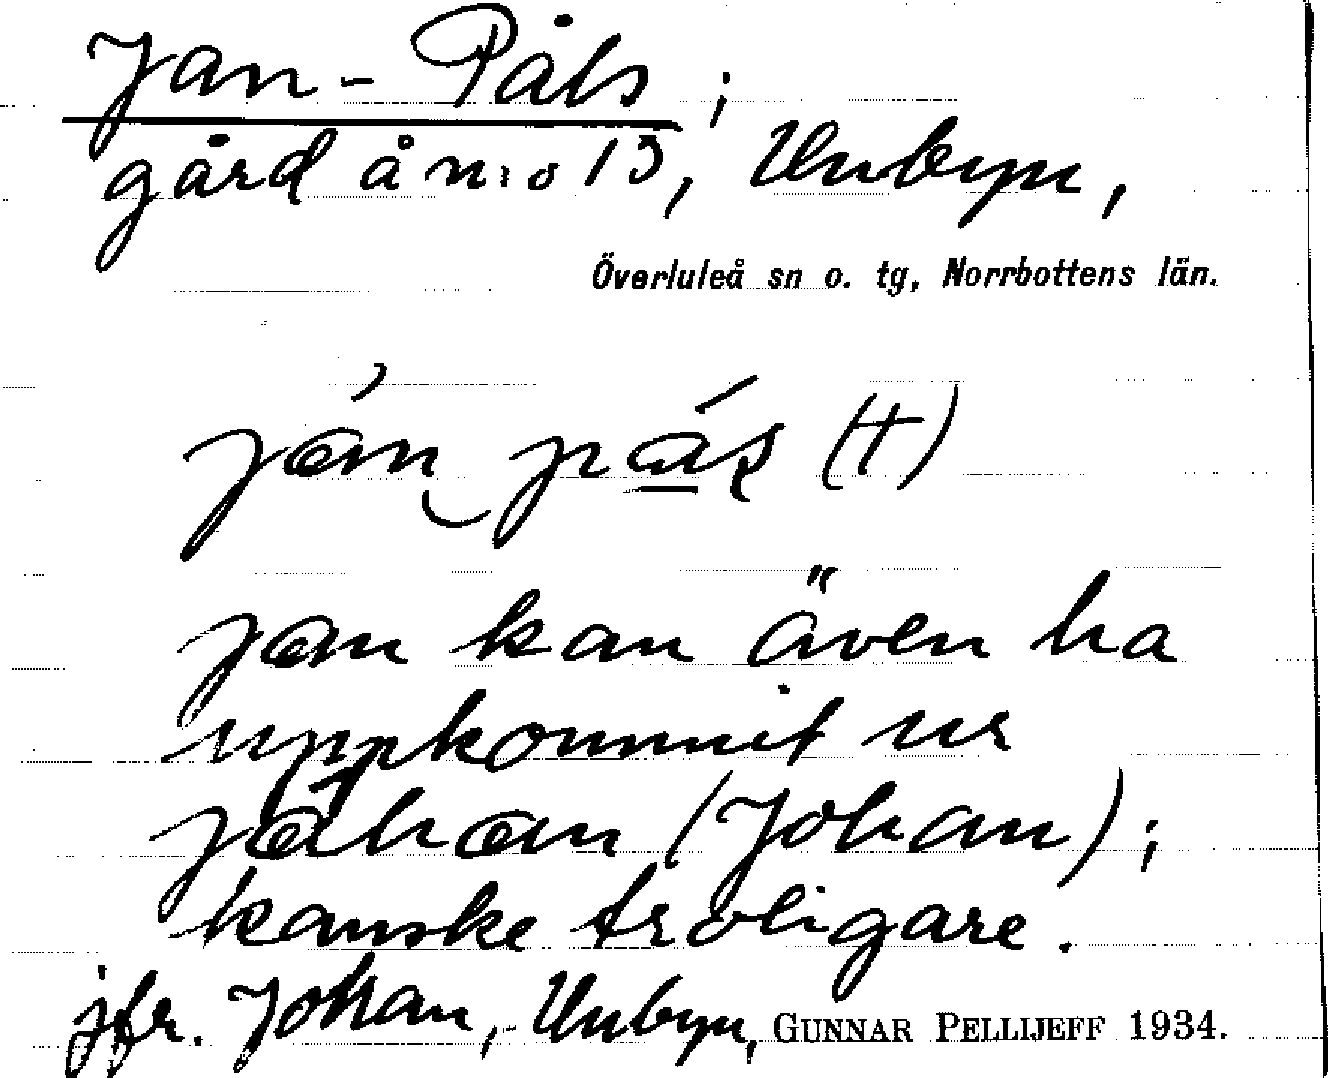 Jan-Påls;
gård å n:o 13, Unbyn,
Överluleå sn o. tg, Norrbottens län.
jan kan även ha
uppkommit ur
(Johan);
kanske troligare.
jfr. Johan, Unbyn, GUNNAR PELLIJEFF 1934.